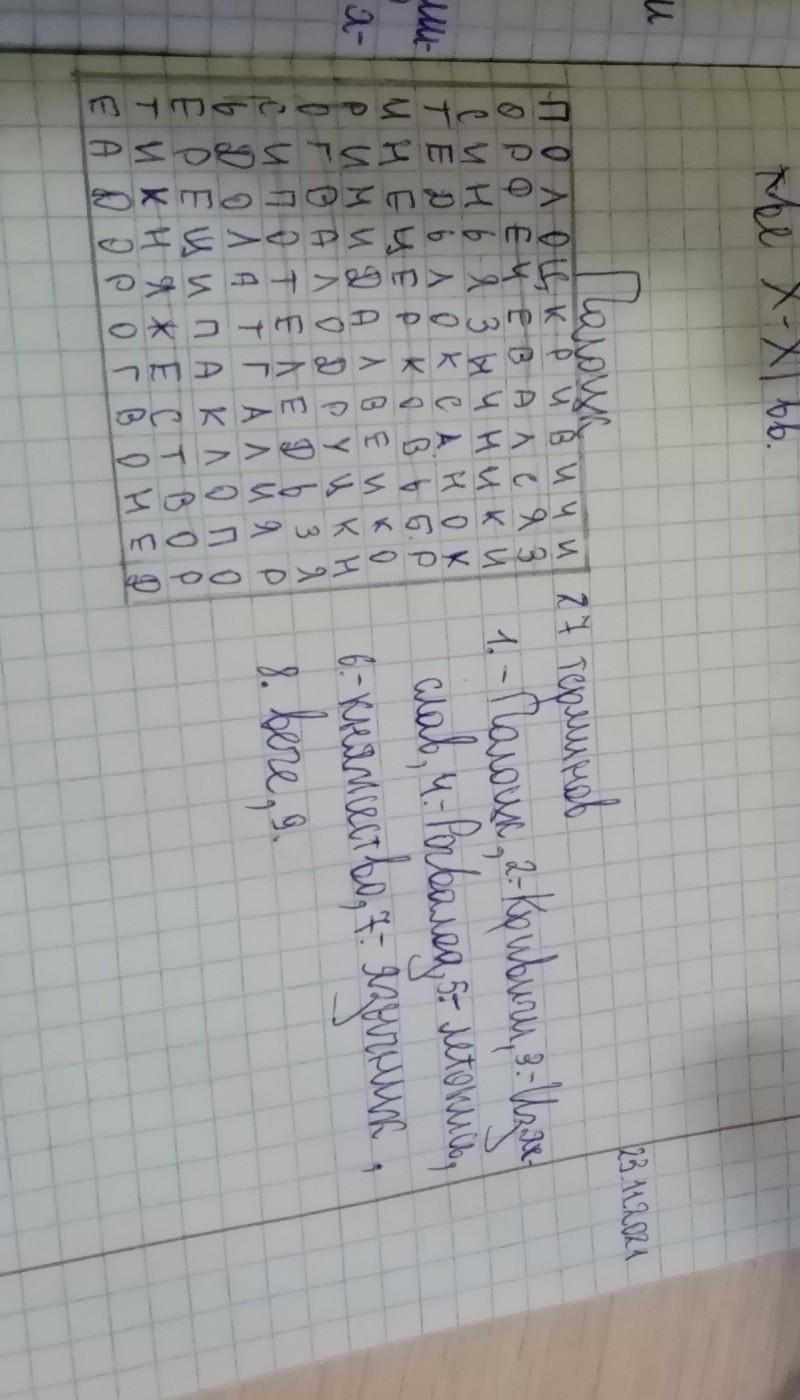 X-XI вв.
23.11.2021
Полоцк
П О Л О Ц К Р И В И Ч И
О Р Ф Е Ч Е В А Л С Я З
С И Н Ь Я З Ы Ч Н И К И
Т Е Д Ь Л О К С А Н О К
И Н Е Ц Е Р К О В Ь Б Р
Р И М И Д А Л В Е И К О
О Г В А Л О Д Р У Ц К Н
С И П О Т Е Л Е Д Ь З Я
Ь Д О Л А Т Г А Л И Я Р
Е Р Е Щ И П А К Л О П О
Т И К Н Я Ж Е С Т В О Р
Е А Д О Р О Г В О Н Е Д
27 терминов
1.- Полоцк, 2.- Кривичи, 3.- Изяс-
слав, 4.- Рогволод, 5.- летопись,
6.- княжество, 7.- язычник,
8. вече, 9.